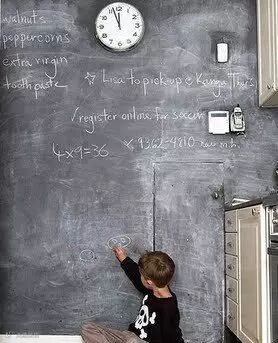 walnuts
peppercorns
extra virgin
toothpaste
☆ Lisa to pick up @ Kanga Thurs
√ register online for soccer
4x9=36
x 9362-4810